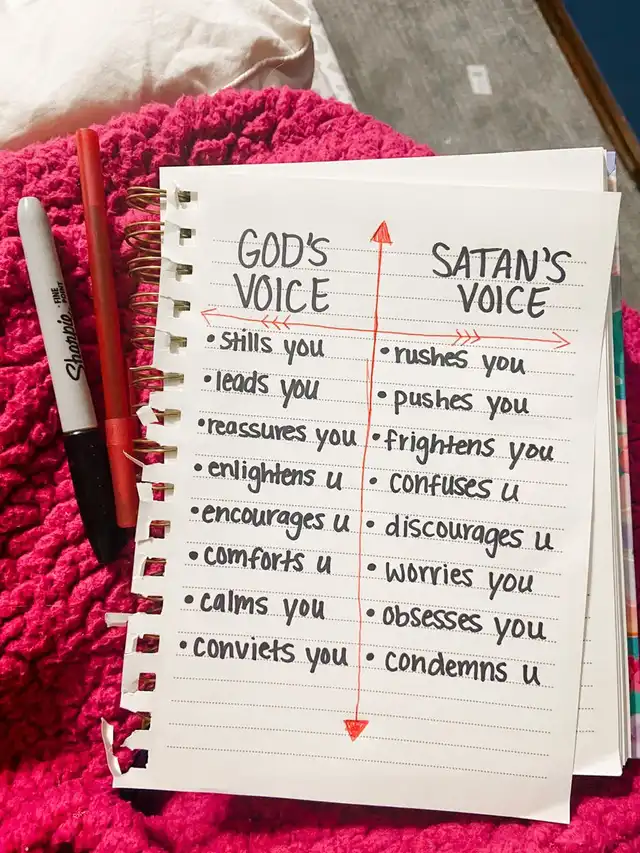 GOD'S
VOICE
• stills you
• leads you
• reassures you
• enlightens u
• encourages u
• comforts u
• calms you
• convicts you
SATAN'S
VOICE
• rushes you
• pushes you
• frightens you
• confuses u
• discourages u
• worries you
• obsesses you
• condemns u
Sharpie
FINE
POINT